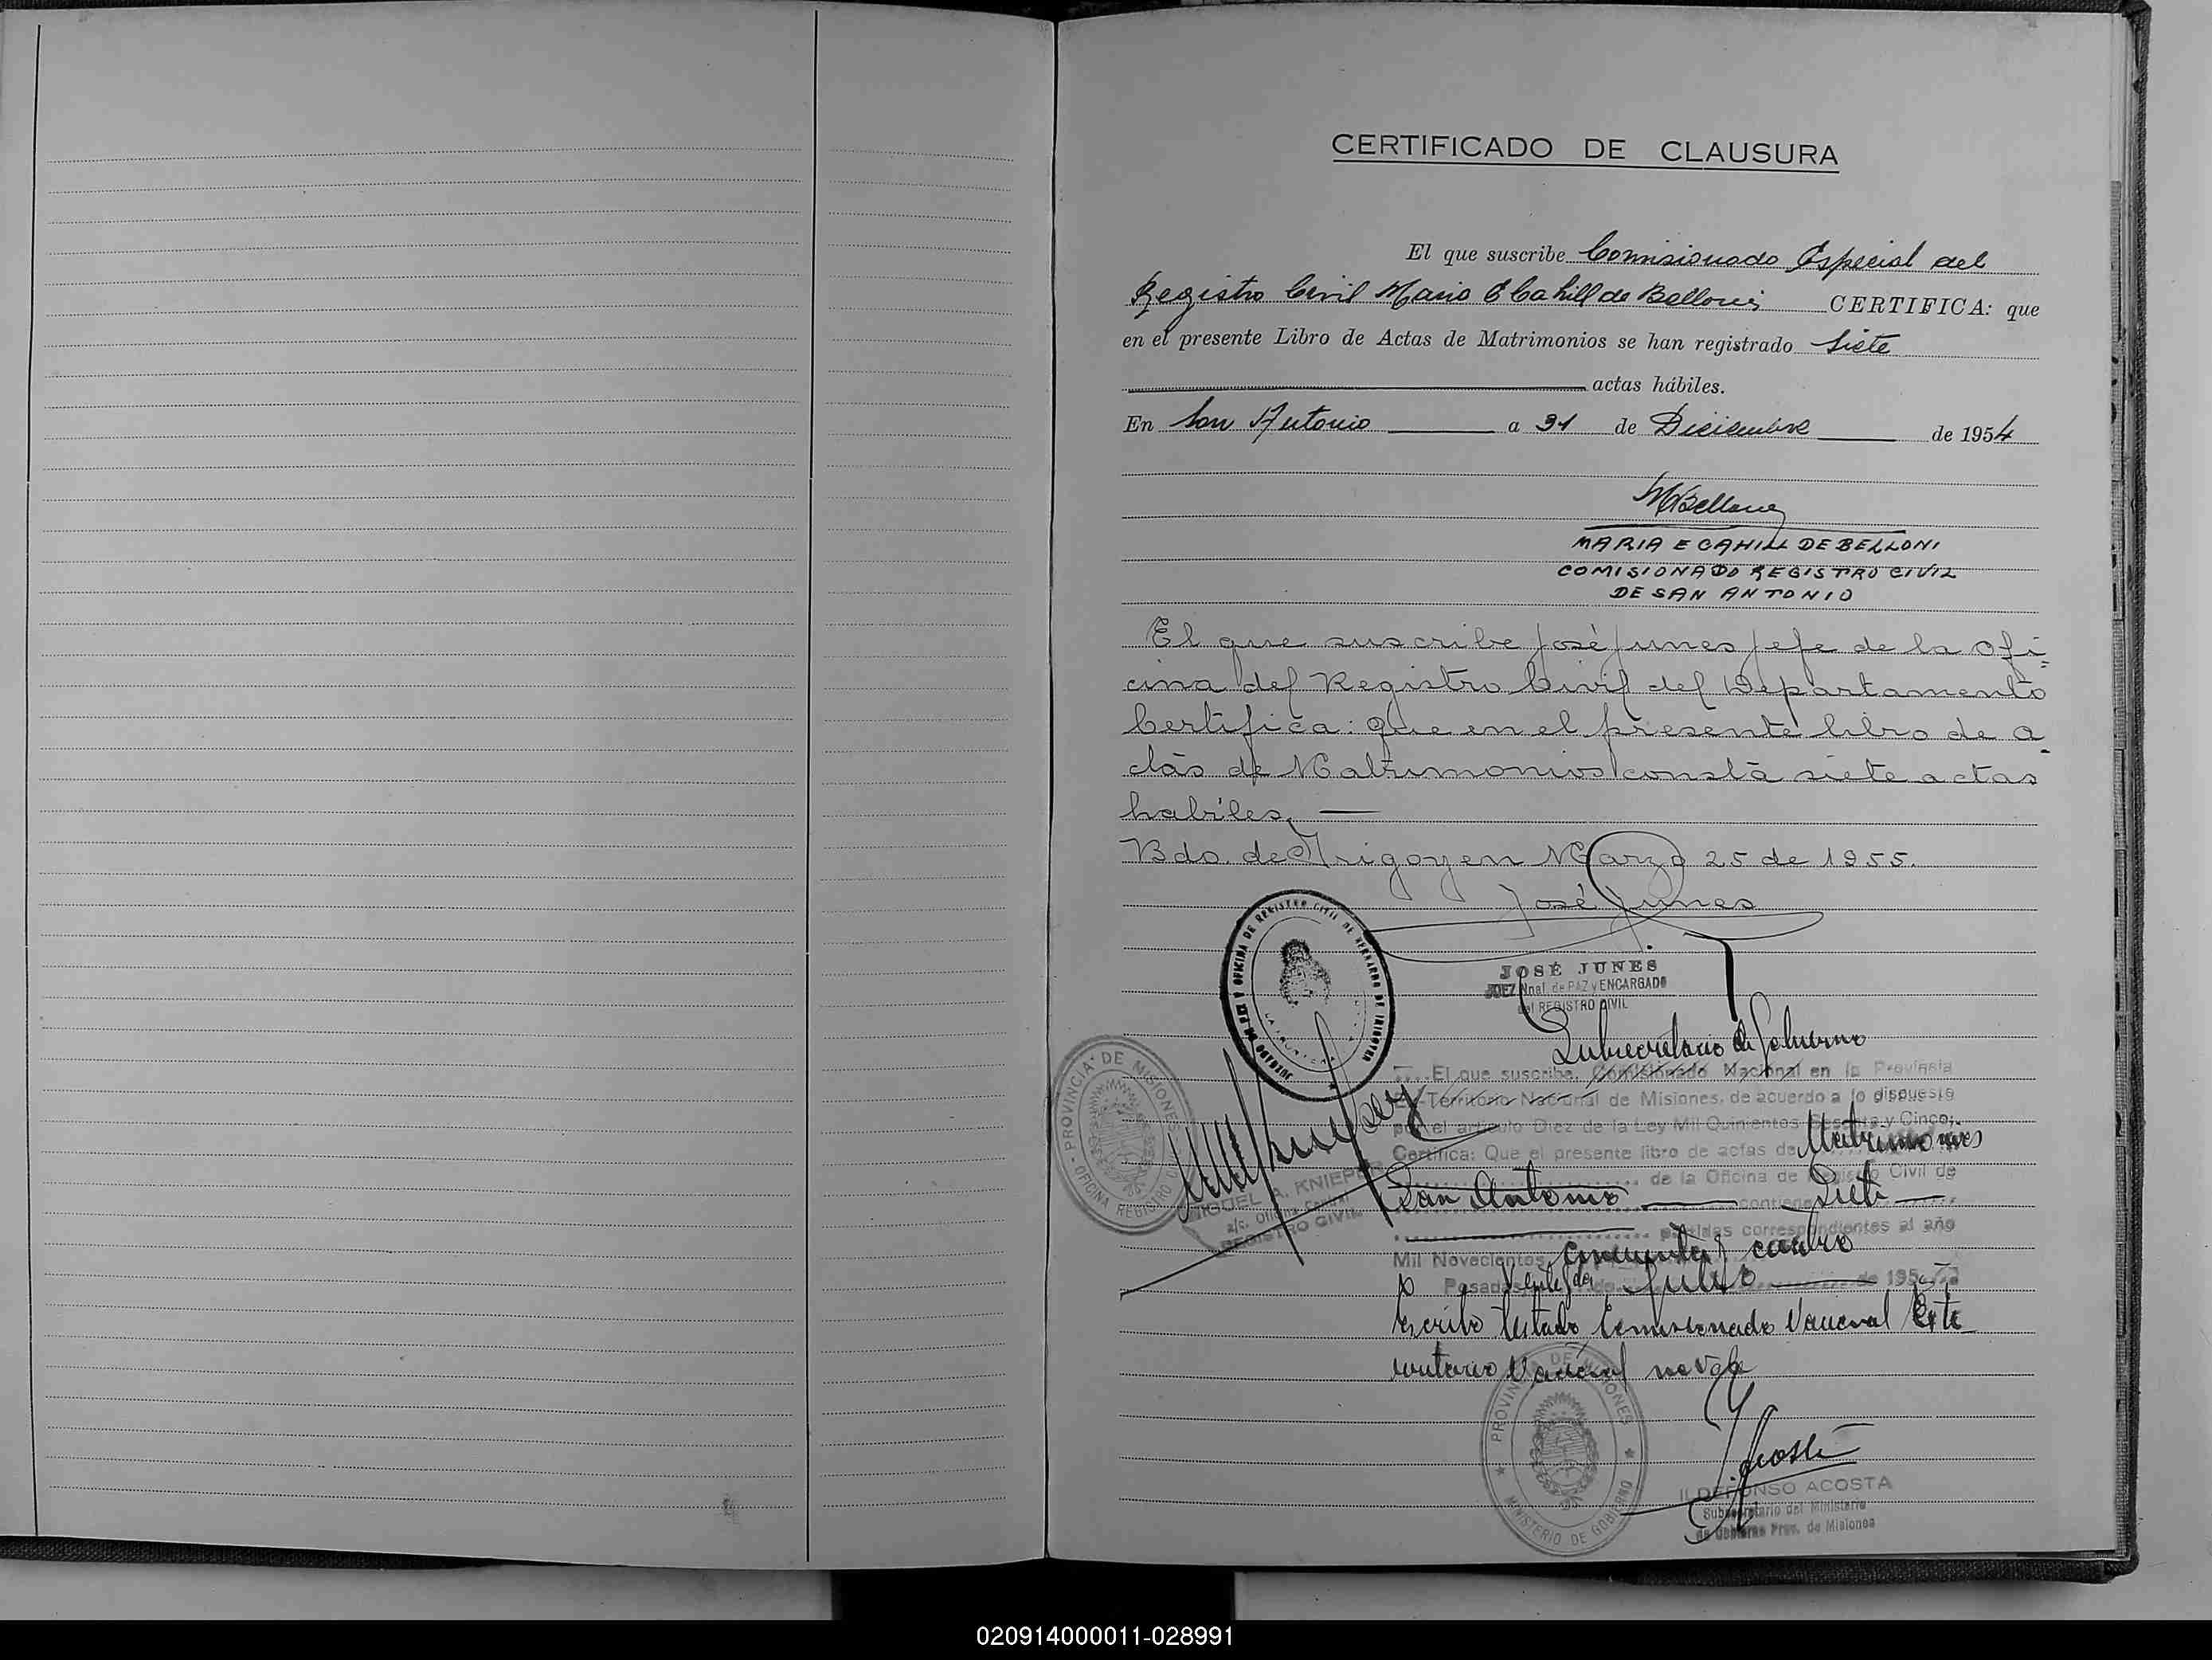 CERTIFICADO DE CLAUSURA
El que suscribe Comisionado Especial del
Registro Civil Maria E Cahill de Belloni CERTIFICA: que
en el presente Libro de Actas de Matrimonios se han registrado Siete
actas hábiles.
En San Antonio a 31 de Diciembre de 1954
MARIA E CAHILL DE BELLONI
COMISIONADO REGISTRO CIVIL
DE SAN ANTONIO
El que suscribe José Junes Jefe de la Ofi=
cina del Registro Civil del Departamento
Certifica: que en el presente libro de a-
ctas de Matrimonios consta siete actas
habiles,
Bdo. de Irigoyen Marzo 25 de 1955.
José Junes
JUZGADO DE PAZ Y OFICINA DE REGISTRO CIVIL DE BERNARDO DE IRIGOYEN
JOSÉ JUNES
JUEZ Nnal. de PAZ y ENCARGADO
del REGISTRO CIVIL
Subsecretario de Gobierno
El que suscribe, Comisionado Nacional en la Provincia
Territorio Nacional de Misiones, de acuerdo a lo dispuesto
por el artículo Diez de la Ley Mil Quinientos Sesenta y Cinco;
Certifica: Que el presente libro de actas de Matrimonios
de la Oficina de Registro Civil de
San Antonio contiene Siete
partidas correspondientes al año
Mil Novecientos cincuenta y cuatro
Posadas, de Julio de 195
escrito testado Comisionado Nacional
Nacional no vale
PROVINCIA DE MISIONES
OFICINA REGISTRO
MIGUEL A. KNIEPER
a/c. Oficina Central
REGISTRO CIVIL
PROVINCIA DE MISIONES
MINISTERIO DE GOBIERNO
ILDEFONSO ACOSTA
Subsecretario del Ministerio
de Gobierno Prov. de Misiones
020914000011-028991